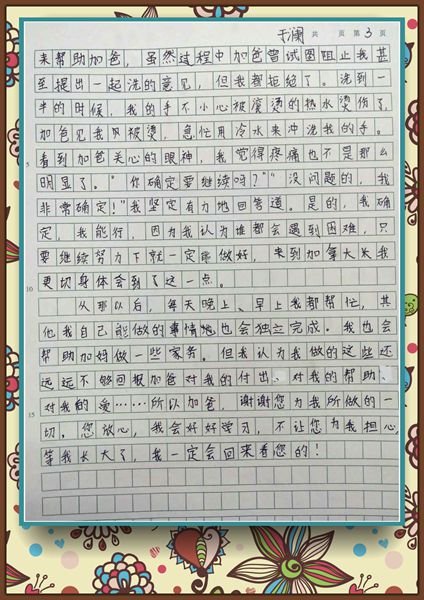 于澜 共 页 第 3 页
来帮助加爸，虽然过程中加爸曾试图阻止我甚
至提出一起洗的意见，但我都拒绝了。洗到一
半的时候，我的手不小心被滚烫的热水烫伤了。
加爸见我被烫，急忙用冷水来冲洗我的手。
看到加爸关心的眼神，我觉得疼痛也不是那么
5
明显了。“你确定要继续吗？”“没问题的，我
非常确定！”我坚定有力地回答道。是的，我确
定，我能行，因为我认为谁都会遇到困难，只
要继续努力下就一定能做好，来到加拿大让我
更切身体会到了这一点。
10
从那以后，每天晚上、早上我都帮忙，其
他我自己能做的事情地也会独立完成。我也会
帮助加妈做一些家务。但我认为我做的这些还
远远不够回报加爸对我的付出、对我的帮助、
对我的爱……所以加爸，谢谢您为我所做的一
15
切，您放心，我会好好学习，不让您为我担心，
等我长大了，我一定会回来看您的！